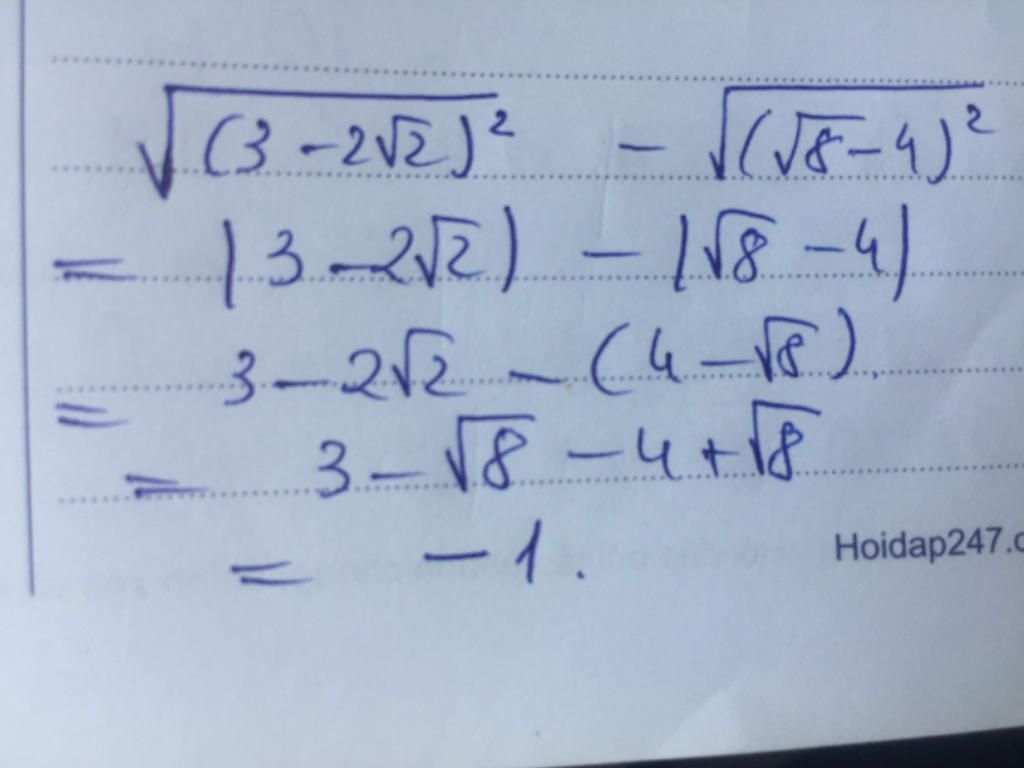 √(3 - 2√2)² - √(√8 - 4)²
= |3 - 2√2| - |√8 - 4|
= 3 - 2√2 - (4 - √8).
= 3 - √8 - 4 + √8
= -1.
Hoidap247.c